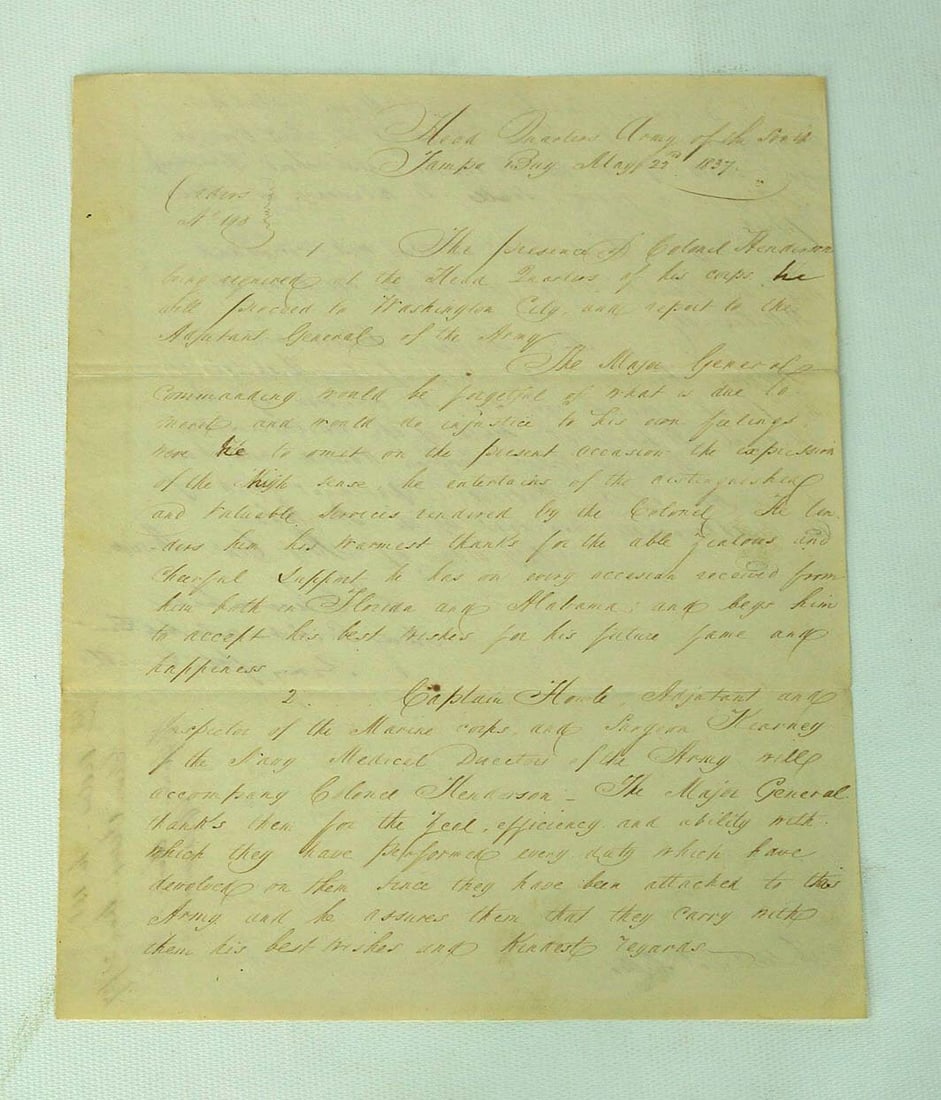 Head Quarters Army of the South
Tampa Bay May 22d 1837.
Orders
No 198
1 The presence of Colonel Henderson
being required at the Head Quarters of his corps he
will proceed to Washington City, and report to the
Adjutant General of the Army
The Major General
Commanding would be forgetful of what is due to
merit, and would do injustice to his own feelings,
were he to omit on the present occasion the expression
of the high sense he entertains of the distinguished
and valuable services rendered by the Colonel. He ten
ders him his warmest thanks for the able zealous and
cheerful support he has on every occasion received from
him both in Florida and Alabama; and begs him
to accept his best wishes for his future fame and
happiness.
2. Captain Howle, Adjutant and
Inspector of the Marine corps, and Surgeon Kearney
of the Navy Medical Director of the Army will
accompany Colonel Henderson - The Major General
thanks them for the zeel, efficiency and ability with
which they have performed every duty which have
devolved on them since they have been attached to this
Army, and he assures them that they carry with
them his best wishes and kindest regards